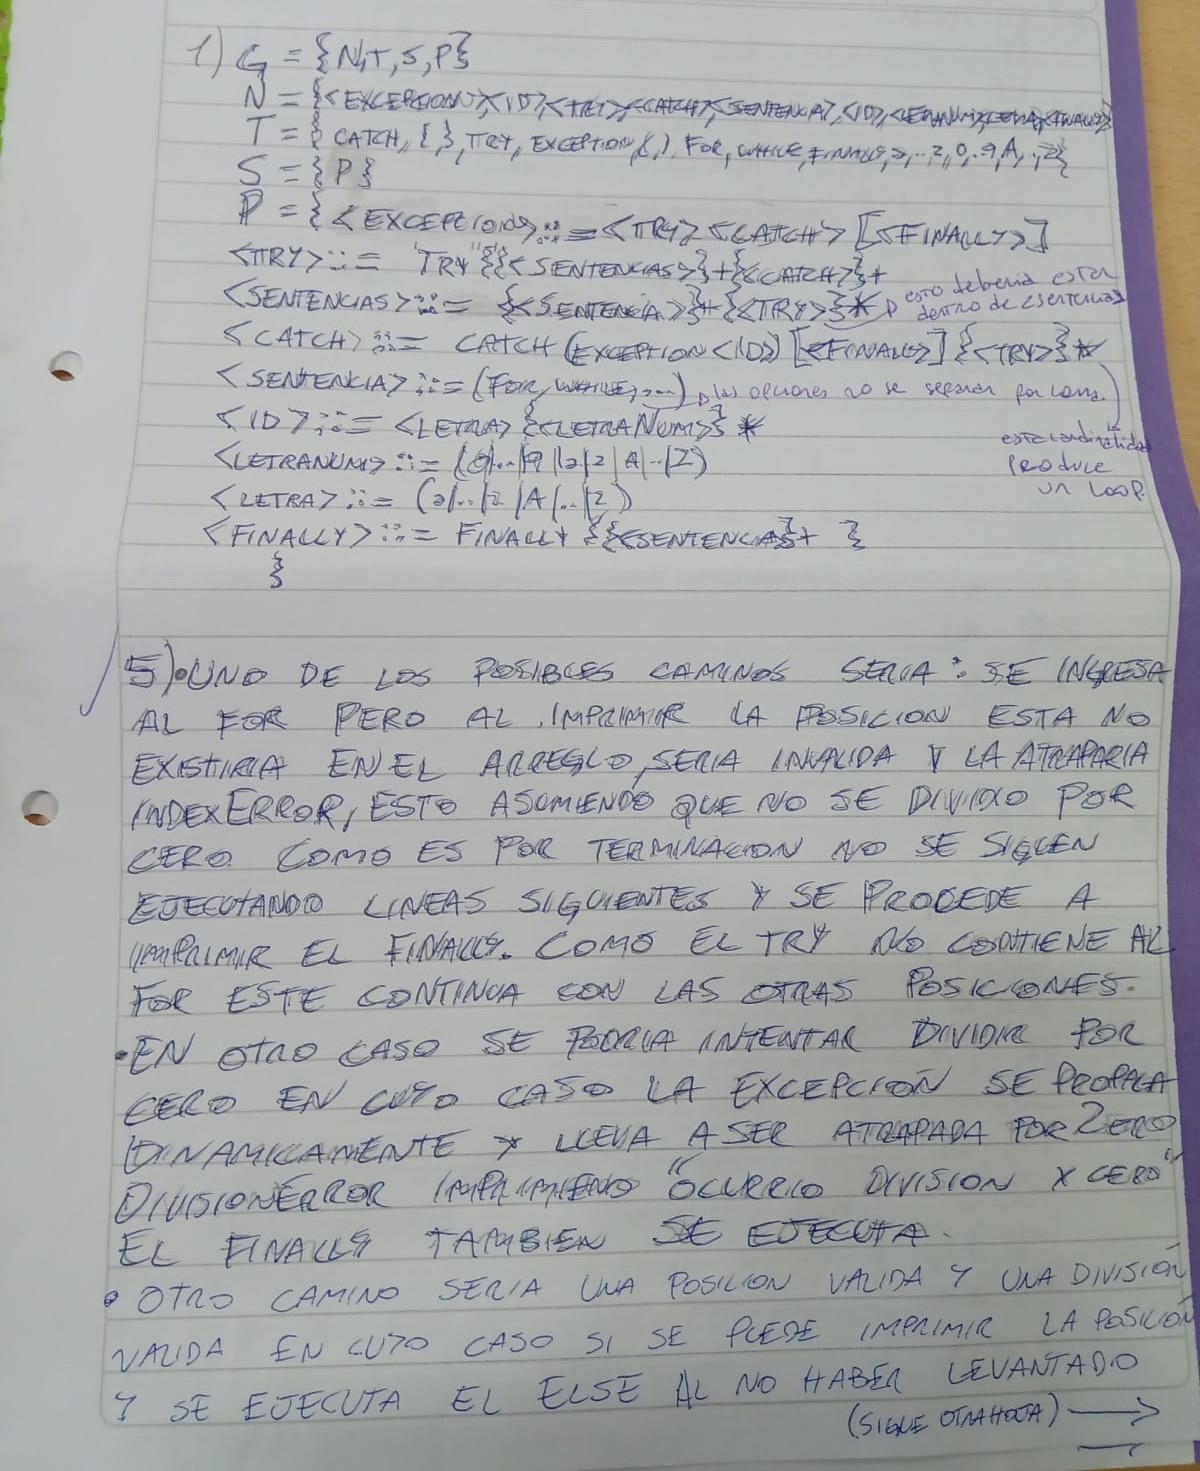 1) G = {N,T,S,P}
N = {<EXCEPTION>,<ID>,<TRY>,<CATCH>,<SENTENCIA>,<ID>,<LETRANUM>,<LETRA>,<FINALLY>}
T = { CATCH, {, }, TRY, EXCEPTION, (, ), FOR, WHILE, FINALLY, a, .. z, 0, .. 9, A, .., Z}
S = {P}
P = { <EXCEPTION> ::= <TRY> <CATCH> [<FINALLY>]
<TRY> ::= TRY "{"{<SENTENCIAS>}+{<CATCH>}+
<SENTENCIAS> ::= {<SENTENCIA>}+{<TRY>}* esto deberia estar
dentro de <sentencia>
<CATCH> ::= CATCH (EXCEPTION <ID>) [<FINALLY>] {<TRY>}*
<SENTENCIA> ::= (FOR, WHILE, ...) las opciones no se separan por coma.
<ID> ::= <LETRA> {<LETRANUM>}*
esta cardinalidad
<LETRANUM> ::= (0|..|9 |a|z| A|..|Z)
produce
un loop.
<LETRA> ::= (a|..|z |A|..|Z)
<FINALLY> ::= FINALLY {{<SENTENCIA>}+ }
}
5) • UNO DE LOS POSIBLES CAMINOS SERIA: SE INGRESA
AL FOR PERO AL IMPRIMIR LA POSICION ESTA NO
EXISTIRIA EN EL ARREGLO, SERIA INVALIDA Y LA ATRAPARIA
INDEXERROR, ESTO ASUMIENDO QUE NO SE DIVIDIO POR
CERO. COMO ES POR TERMINACION NO SE SIGUEN
EJECUTANDO LINEAS SIGUIENTES Y SE PROCEDE A
IMPRIMIR EL FINALLY. COMO EL TRY NO CONTIENE AL
FOR ESTE CONTINUA CON LAS OTRAS POSICIONES.
• EN OTRO CASO SE PODRIA INTENTAR DIVIDIR POR
CERO EN CUYO CASO LA EXCEPCION SE PROPAGA
DINAMICAMENTE Y LLEVA A SER ATRAPADA POR ZERO
DIVISIONERROR IMPRIMIENO "OCURRIO DIVISION X CERO"
EL FINALLY TAMBIEN SE EJECUTA.
• OTRO CAMINO SERIA UNA POSICION VALIDA Y UNA DIVISIÓN
VALIDA EN CUYO CASO SI SE PUEDE IMPRIMIR LA POSICIÓN
Y SE EJECUTA EL ELSE AL NO HABER LEVANTADO
(SIGUE OTRA HOJA) →